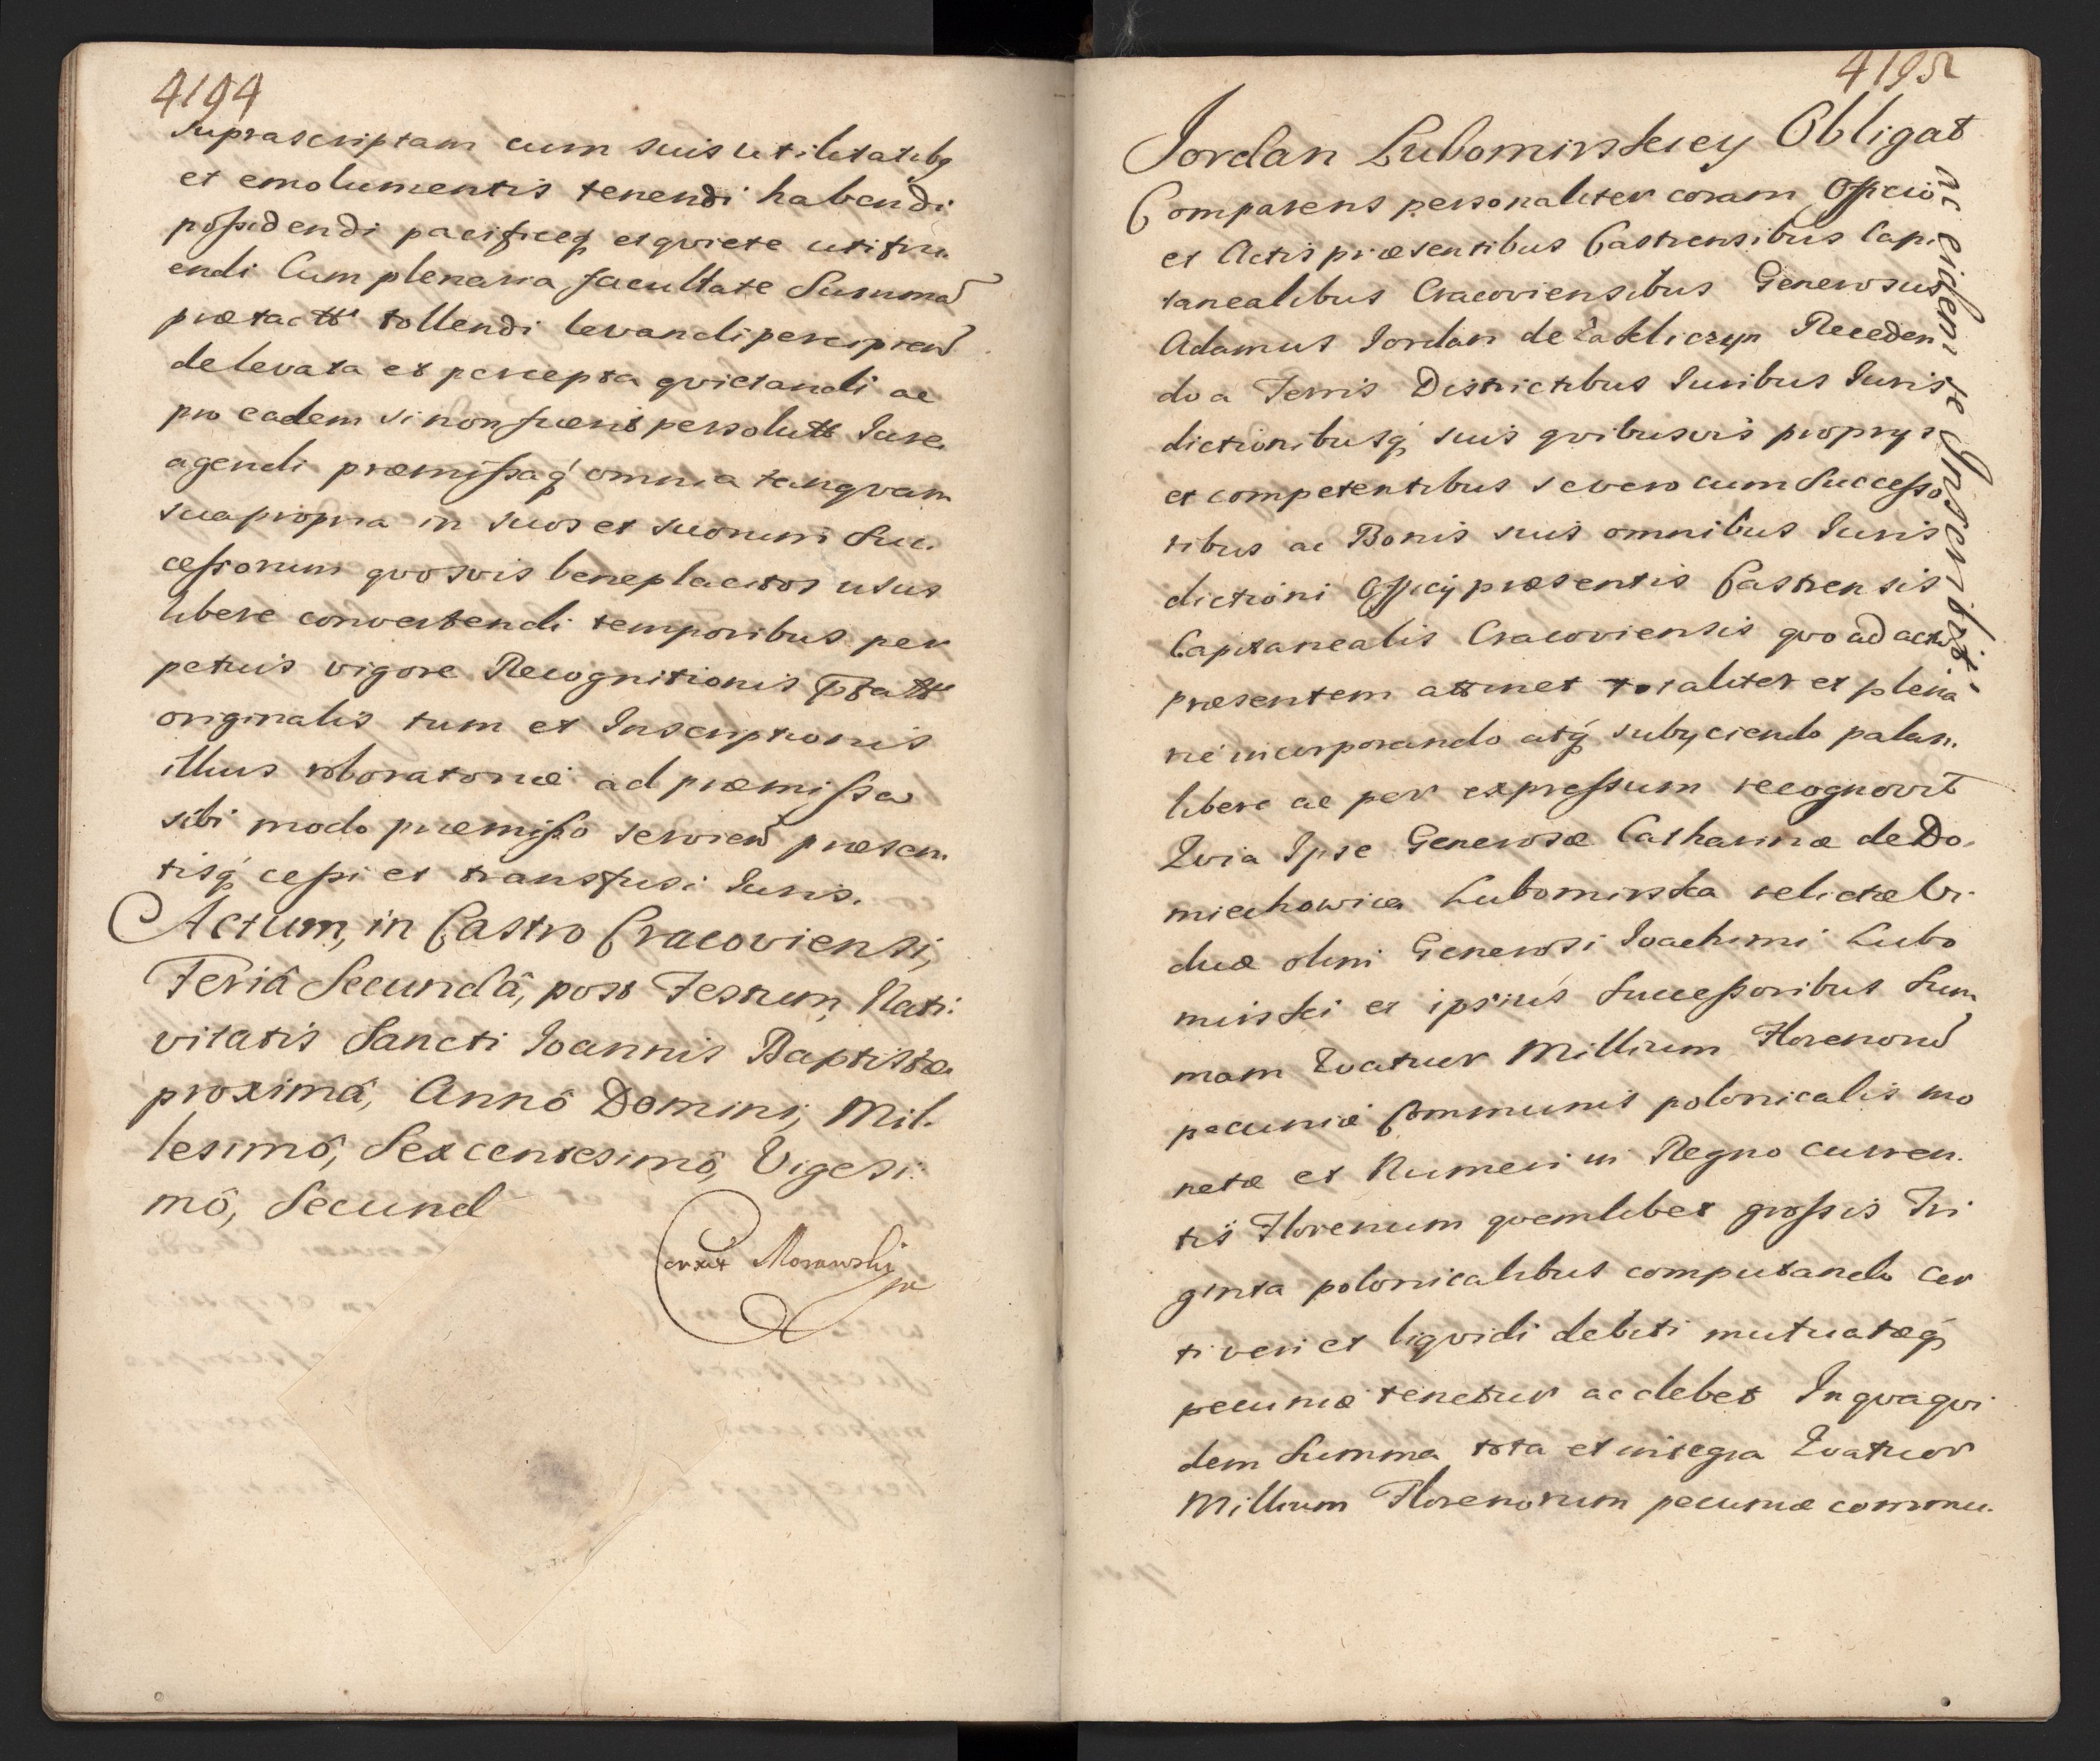 4194
suprascriptam cum suis utilitatibq
et emolumentis tenendi habendi
possidendi pacificeq et qviete utifru.
endi Cum plenaria facultate Summa
prætactt tollendi levandi percipien
de levata et percepta qvietandi ac
pro eadem si non fuerit persolutt Iure
agendi præmissaq omnia tanqvam
sua propria in suos et suorum Suc.
cessorum qvosvis beneplacitos usus
libere convertendi temporibus per
petuis vigore Recognitionis
originalis tum et Inscriptionis
illius roboratoriæ ad præmissa
sibi modo præmisso servien præsen.
tisq cessi et transfusi Iuris.
Actum, in Castro Cracoviensi,
Feriâ Secundâ, post Festum, Nati:
vitatis Sancti Ioannis Baptistæ
proximâ, Annô Domini, Mil.
lesimô, Sexcentesimô, Vigesi:
mô, Secund
Corrext Morawski
4195
Jordan Lubomirskiey Obligat
ac eidem se Inscribit.
Comparens personaliter coram Officio
et Actis præsentibus Castrensibus Capi
tanealibus Cracoviensibus Generosus
Adamus Iordan de Zakliczyn Receden
do a Terris Districtibus Iuribus Iuris
dictionibusq suis qvibusvis proprys
et competentibus se vero cum Successo
ribus ac Bonis suis omnibus Iuris
dictioni Officy præsentis Castrensis
Capitanealis Cracoviensis qvo ad actu
præsentem attinet totaliter et plena
rie incorporando atq subyciendo palam.
libere ac per expressum recognovit
Qvia Ipse Generosæ Catharinæ de Do.
miechowice Lubomirska relictæ Vi.
duæ olim Generosi Ioachimi Lubo
mirski et ipsius Successoribus Sum
mam Qvatuor Millium Florenoru
pecuniæ Communis polonicalis mo
netæ et Numeri in Regno curren.
tis Florenum qvemlibet grossis Tri
ginta polonicalibus computando cer
ti veri et liqvidi debiti mutuatæq
pecuniæ tenetur ac debet In qva qvi
dem Summa tota et integra Qvatuor
Millium Florenorum pecuniæ commu.